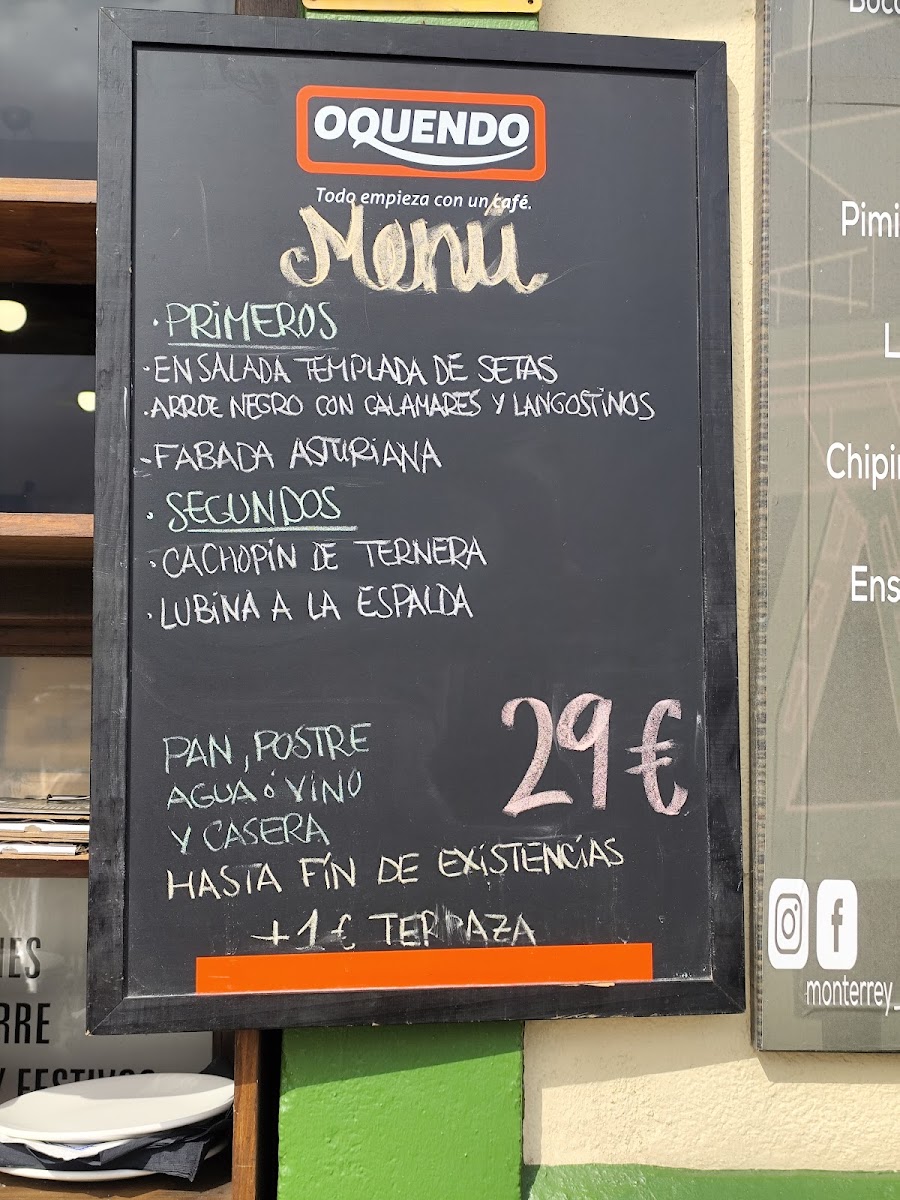 OQUENDO
Todo empieza con un café.
Menú
· PRIMEROS
· ENSALADA TEMPLADA DE SETAS
· ARROZ NEGRO CON CALAMARES Y LANGOSTINOS
- FABADA ASTURIANA
· SEGUNDOS
· CACHOPÍN DE TERNERA
· LUBINA A LA ESPALDA
29 €
PAN, POSTRE
AGUA ó VINO
Y CASERA
HASTA FÍN DE EXISTENCIAS
+1 € TERRAZA
Pimi
L
Chipi
Ens
monterrey_
RRE
Y FESTIVOS